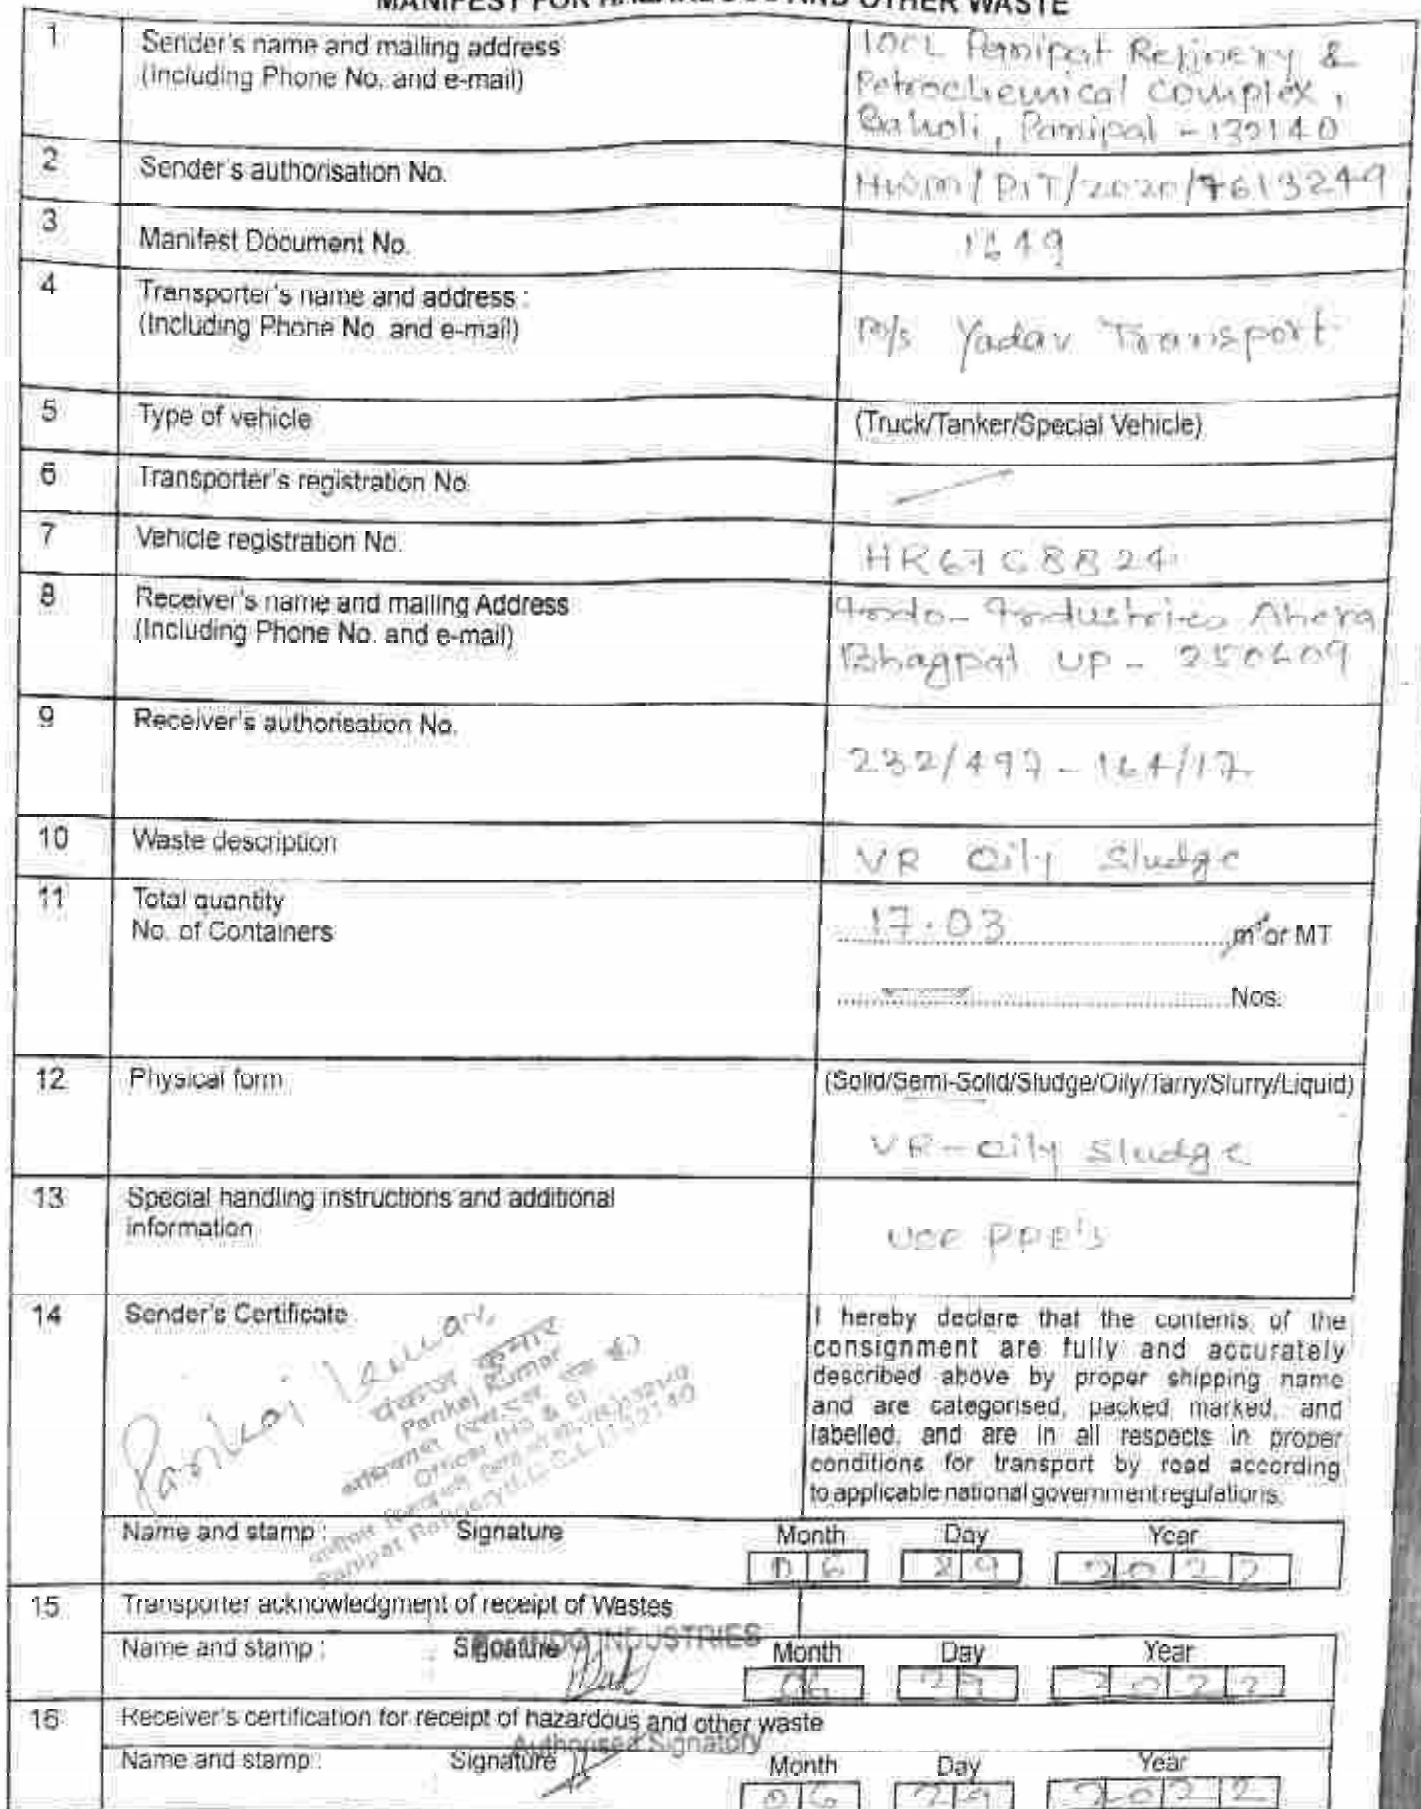 MANIFEST FOR HAZARDOUS AND OTHER WASTE
1 Sender's name and mailing address
(Including Phone No. and e-mail)
IOCL Panipat Refinery &
Petrochemical Complex,
Baholi, Panipat - 132140
2 Sender's authorisation No.
HWM/PIT/2020/7613249
3 Manifest Document No.
1649
4 Transporter's name and address :
(Including Phone No. and e-mail)
M/s Yadav Transport
5 Type of vehicle
(Truck/Tanker/Special Vehicle)
6 Transporter's registration No.
7 Vehicle registration No.
HR67C8824
8 Receiver's name and mailing Address
(Including Phone No. and e-mail)
Industries Ahera
Bhagpat UP - 250609
9 Receiver's authorisation No.
232/497-164/17
10 Waste description
VR Oily Sludge
11 Total quantity
No. of Containers
17.03 m³ or MT
Nos.
12 Physical form
(Solid/Semi-Solid/Sludge/Oily/Tarry/Slurry/Liquid)
VR-Oily Sludge
13 Special handling instructions and additional
information
Use PPE's
14 Sender's Certificate
I hereby declare that the contents of the
consignment are fully and accurately
described above by proper shipping name
and are categorised, packed, marked, and
labelled, and are in all respects in proper
conditions for transport by road according
to applicable national government regulations.
Pankaj Kumar
पंकज कुमार
Pankaj Kumar
Panipat Refinery
Name and stamp : Signature Month Day Year
06 29 2022
15 Transporter acknowledgment of receipt of Wastes
INDUSTRIES
Name and stamp : Signature Month Day Year
06 29 2022
16 Receiver's certification for receipt of hazardous and other waste
Authorised Signatory
Name and stamp : Signature Month Day Year
06 29 2022